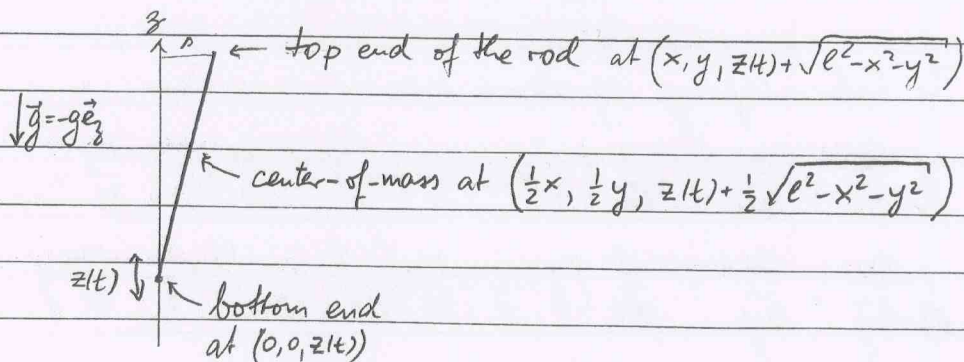 z
s
← top end of the rod at (x, y, z(t)+√(ℓ²-x²-y²))
↓ g⃗=-ge⃗_z
center-of-mass at (½x, ½y, z(t)+½√(ℓ²-x²-y²))
z(t) ↕
bottom end
at (0,0,z(t))